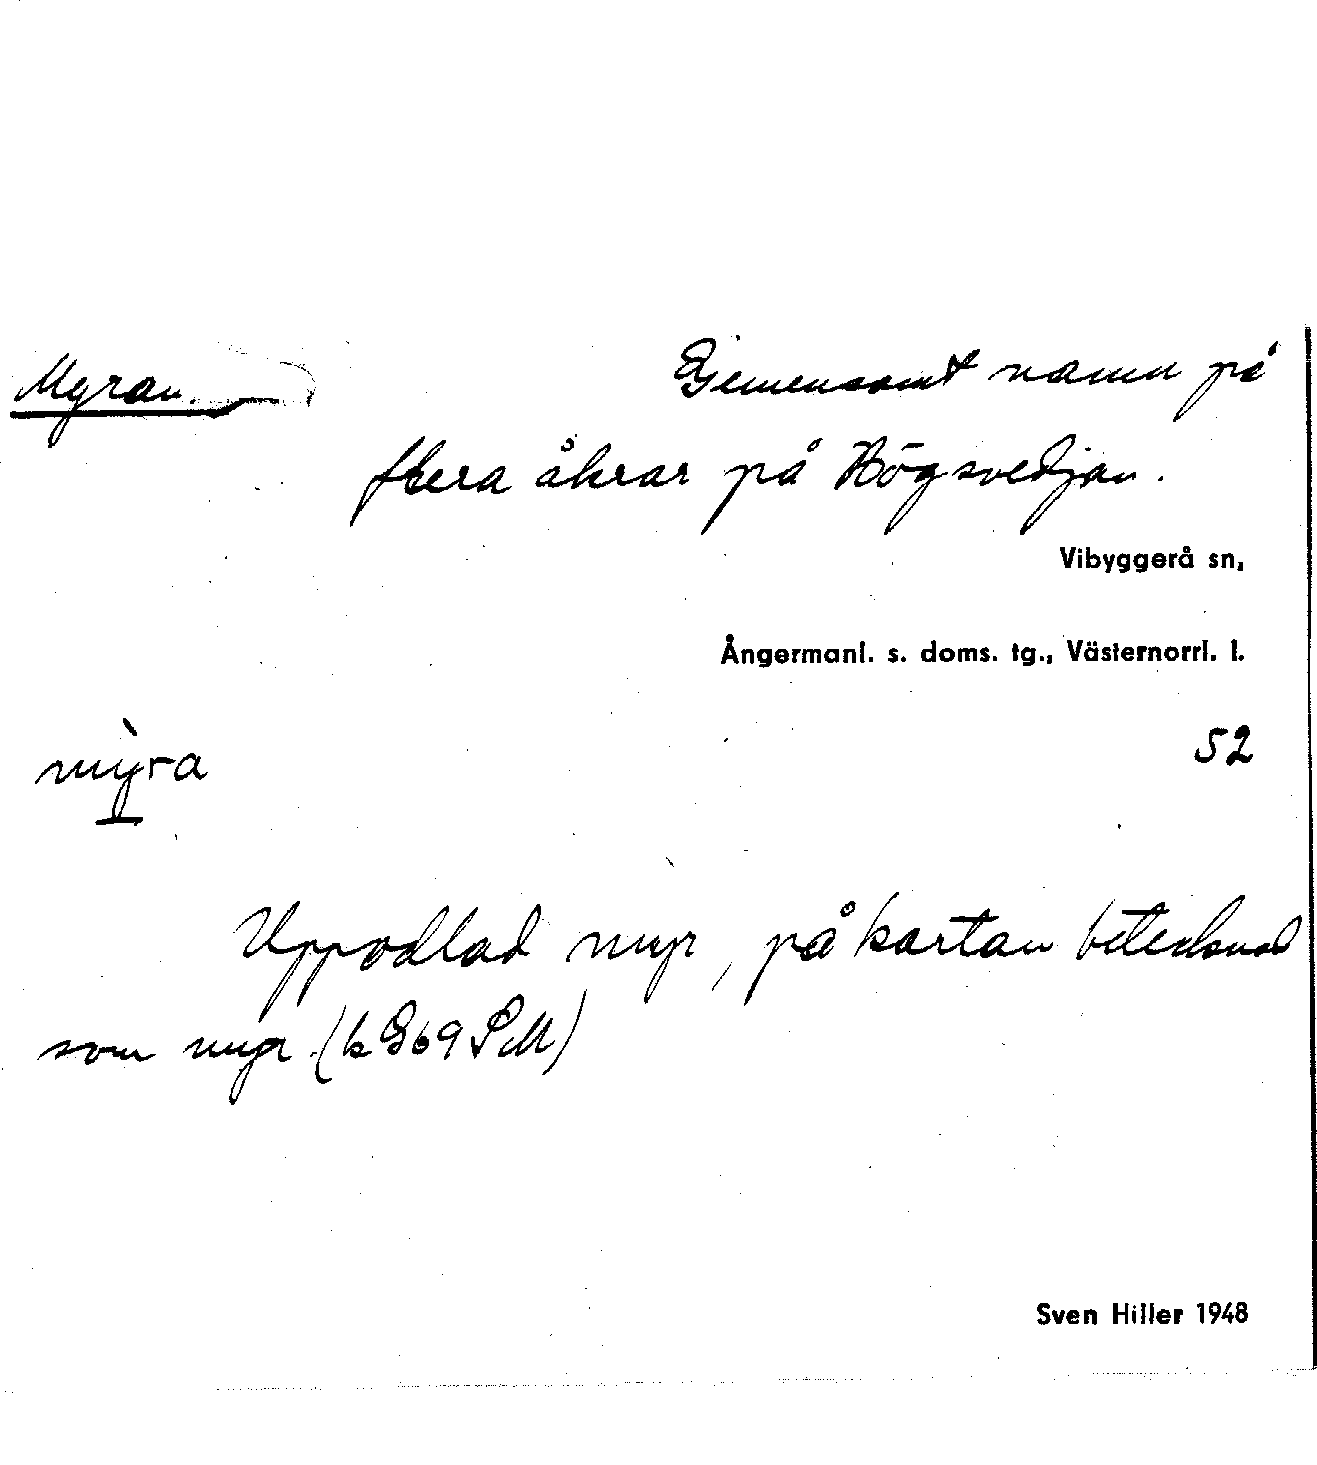 Myran.
Gemensamt namn på
flera åkrar på Högsvedjan.
Vibyggerå sn,
Ångermanl. s. doms. tg., Västernorrl. l.
52
mỳra
Uppodlad myr, på kartan betecknad
som myr (k G69 SM)
Sven Hiller 1948